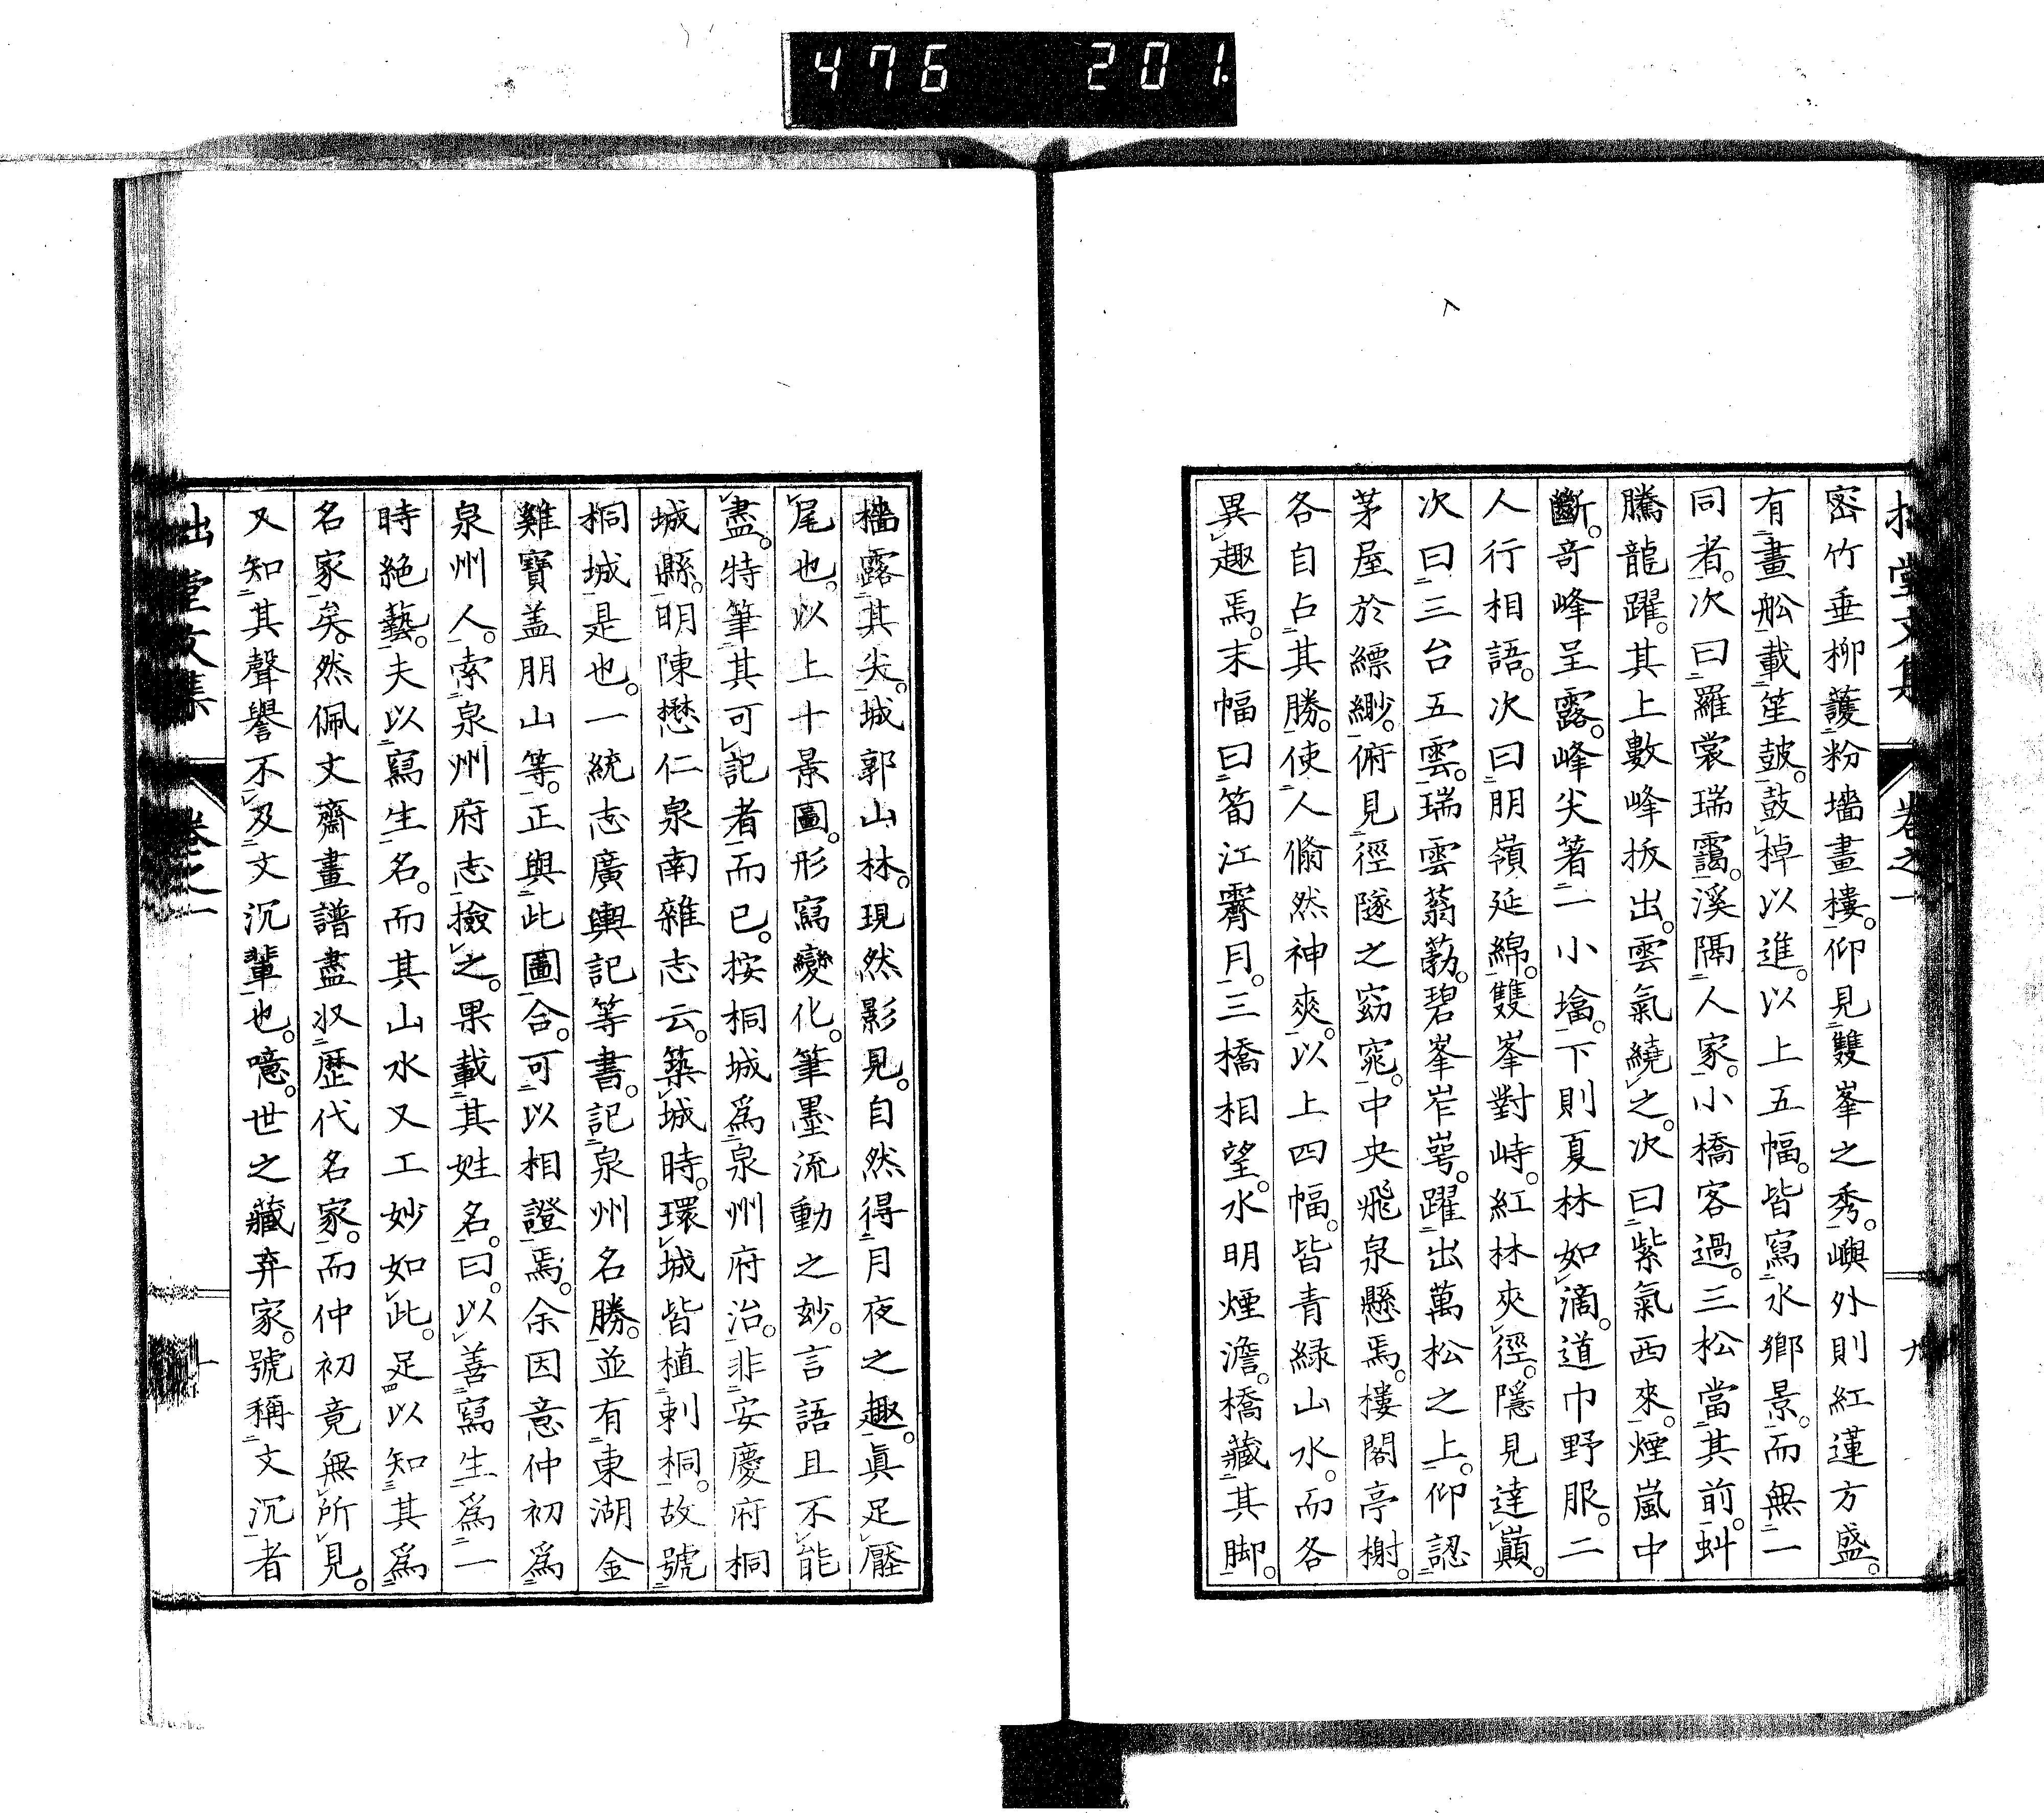 476 201
拙堂文集 卷之一 九
密竹垂柳護粉墻畫樓。仰見雙峯之秀。嶼外則紅蓮方盛。
有畫舩載笙鼓。鼓棹以進。以上五幅。皆寫水鄉景。而無一
同者。次曰羅裳瑞靄。溪隔人家。小橋客過。三松當其前。蚪
騰龍躍。其上數峰拔出。雲氣繞之。次曰紫氣西來。煙嵐中
斷。奇峰呈露。峰尖著二小墖。下則夏林如滴。道巾野服。二
人行相語。次曰朋嶺延綿。雙峯對峙。紅林夾徑。隱見達巔。
次曰三台五雲。瑞雲蓊葧。碧峯岝崿。躍出萬松之上。仰認
茅屋於縹緲。俯見徑隧之窈窕。中央飛泉懸焉。樓閣亭榭。
各自占其勝。使人翛然神爽。以上四幅。皆青綠山水。而各
異趣焉。末幅曰筍江霽月。三橋相望。水明煙澹。橋藏其脚。
檣露其尖。城郭山林。現然影見。自然得月夜之趣。眞足壓
尾也。以上十景圖。形寫變化。筆墨流動之玅。言語且不能
盡。特筆其可記者而已。按桐城爲泉州府治。非安慶府桐
城縣。明陳懋仁泉南雜志云。築城時。環城皆植刺桐。故號
桐城是也。一統志廣輿記等書。記泉州名勝。並有東湖金
雞寶盖朋山等。正與此圖合。可以相證焉。余因意仲初爲
泉州人。索泉州府志撿之。果載其姓名。曰。以善寫生爲一
時絕藝。夫以寫生名。而其山水又工妙如此。足以知其爲
名家矣。然佩文齋畫譜盡収歷代名家。而仲初竟無所見。
又知其聲譽不及文沉輩也。噫。世之藏弆家。號稱文沉者
拙堂文集 卷之一